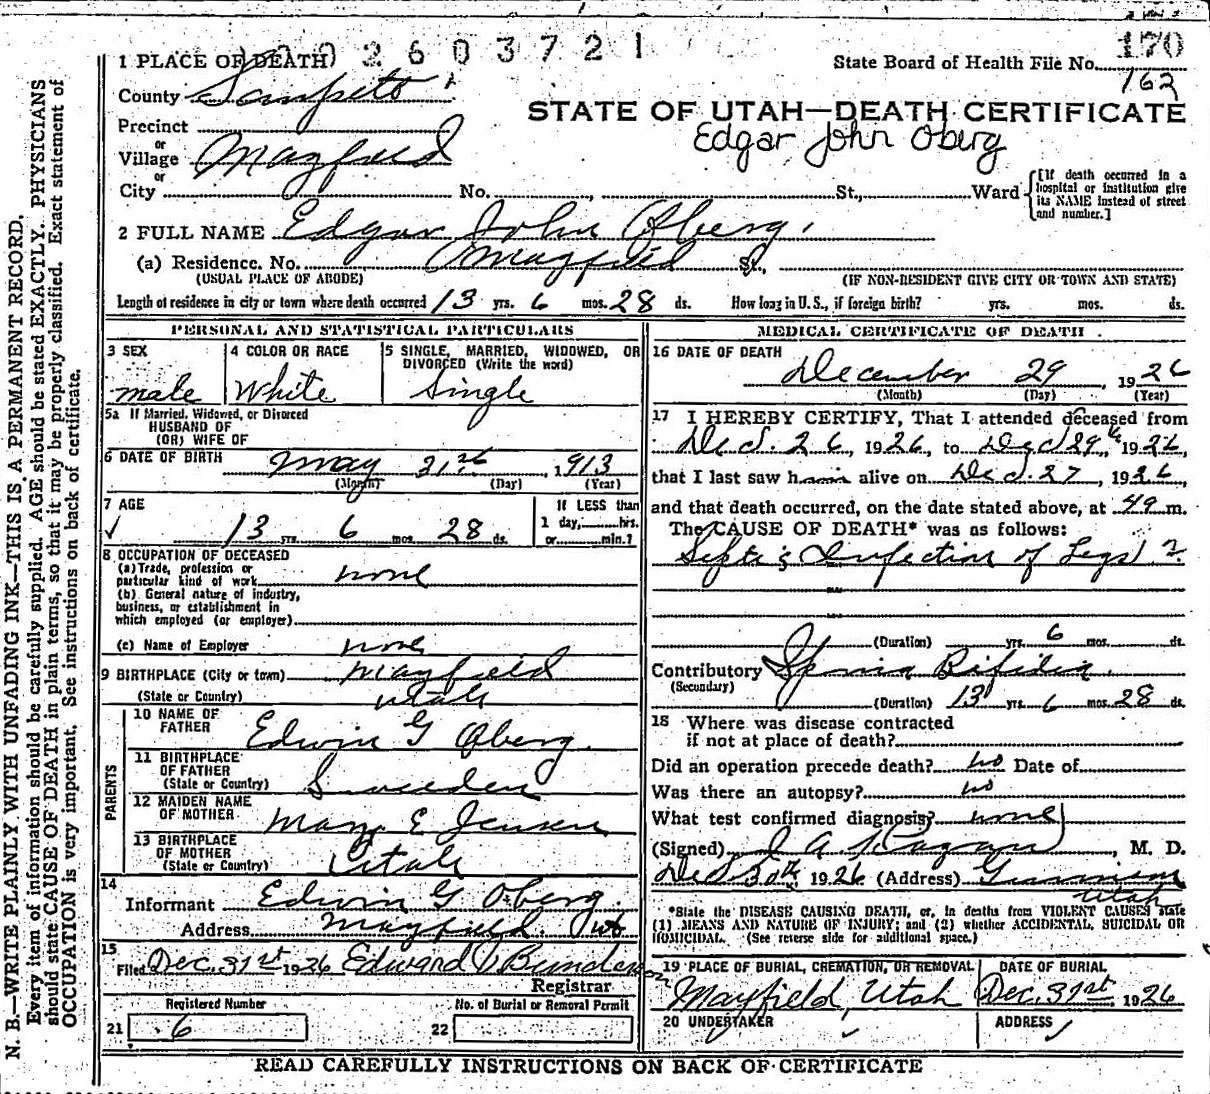 2603721
170
162
1 PLACE OF DEATH
State Board of Health File No.
County Sanpete
STATE OF UTAH—DEATH CERTIFICATE
Edgar John Oberg
Precinct
or
Village Mayfield
or
City No. St., Ward
[If death occurred in a hospital or institution give its NAME instead of street and number.]
2 FULL NAME Edgar John Oberg
(a) Residence. No. Mayfield St.,
(USUAL PLACE OF ABODE) (IF NON-RESIDENT GIVE CITY OR TOWN AND STATE)
Length of residence in city or town where death occurred 13 yrs. 6 mos. 28 ds. How long in U. S., if foreign birth? yrs. mos. ds.
PERSONAL AND STATISTICAL PARTICULARS
3 SEX
male
4 COLOR OR RACE
White
5 SINGLE, MARRIED, WIDOWED, OR DIVORCED (Write the word)
Single
5a If Married, Widowed, or Divorced
HUSBAND OF
(OR) WIFE OF
6 DATE OF BIRTH May 31st, 1913
(Month) (Day) (Year)
7 AGE
13 yrs. 6 mos. 28 ds.
If LESS than
1 day, hrs.
or min.?
8 OCCUPATION OF DECEASED
(a) Trade, profession or
particular kind of work none
(b) General nature of industry,
business, or establishment in
which employed (or employer)
(c) Name of Employer none
9 BIRTHPLACE (City or town) Mayfield
(State or Country) Utah
PARENTS
10 NAME OF
FATHER Edwin G Oberg
11 BIRTHPLACE
OF FATHER
(State or Country) Sweden
12 MAIDEN NAME
OF MOTHER Mary E Jensen
13 BIRTHPLACE
OF MOTHER
(State or Country) Utah
14
Informant Edwin G Oberg
Address Mayfield Ut
15
Filed Dec. 31st 1926 Edward
Registrar
Registered Number
21 6
No. of Burial or Removal Permit
22
MEDICAL CERTIFICATE OF DEATH
16 DATE OF DEATH
December 29, 1926
(Month) (Day) (Year)
17 I HEREBY CERTIFY, That I attended deceased from
Dec. 26, 1926, to Dec 29th, 1926,
that I last saw him alive on Dec. 27, 1926,
and that death occurred, on the date stated above, at m.
The CAUSE OF DEATH* was as follows:
Infection of Legs
(Duration) yrs. 6 mos. ds.
Contributory Spina Bifida
(Secondary)
(Duration) 13 yrs. 6 mos. 28 ds.
18 Where was disease contracted
if not at place of death?
Did an operation precede death? no Date of
Was there an autopsy? no
What test confirmed diagnosis? none
(Signed) M. D.
Dec 30th, 1926 (Address) Gunnison
Utah
*State the DISEASE CAUSING DEATH, or, in deaths from VIOLENT CAUSES state
(1) MEANS AND NATURE OF INJURY; and (2) whether ACCIDENTAL, SUICIDAL OR
HOMICIDAL. (See reverse side for additional space.)
19 PLACE OF BURIAL, CREMATION, OR REMOVAL
Mayfield, Utah
DATE OF BURIAL
Dec. 31st, 1926
20 UNDERTAKER
ADDRESS
READ CAREFULLY INSTRUCTIONS ON BACK OF CERTIFICATE
N. B.—WRITE PLAINLY WITH UNFADING INK—THIS IS A PERMANENT RECORD.
Every item of information should be carefully supplied. AGE should be stated EXACTLY. PHYSICIANS
should state CAUSE OF DEATH in plain terms, so that it may be properly classified. Exact statement of
OCCUPATION is very important. See instructions on back of certificate.